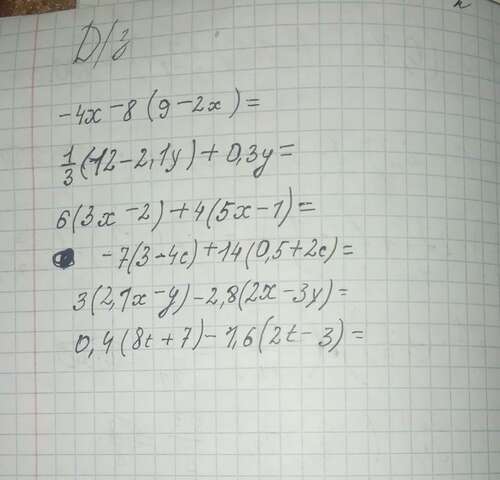 Д/з
-4x-8(9-2x)=
1/3(12-2,1y)+0,3y=
6(3x-2)+4(5x-1)=
-7(3-4c)+14(0,5+2c)=
3(2,1x-y)-2,8(2x-3y)=
0,4(8t+7)-1,6(2t-3)=